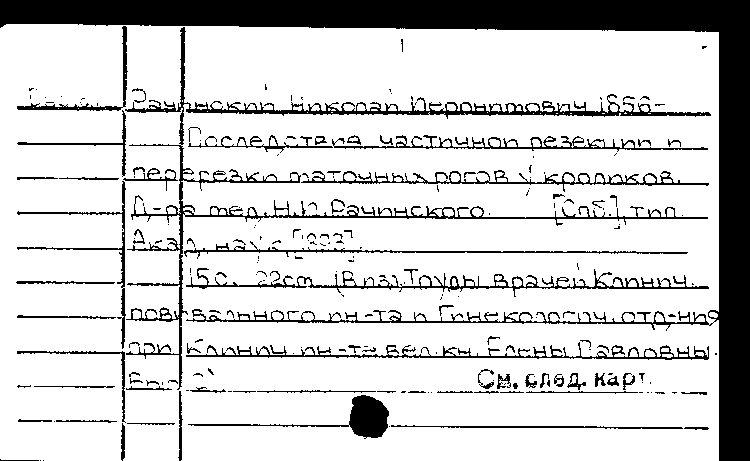 Рачинский, Николай Иеронимович 1856-
Последствия частичной резекции и
перерезки маточных рогов у кроликов.
Д-ра мед. Н.И. Рачинского. [Спб.], тип.
Акад. наук, [1893].
15 с. 22 см. (В изд. Труды врачей Клинич.
повивального ин-та и Гинекологич. отд-ния
при Клинич. ин-те вел. кн. Елены Павловны.
Вып. 2
См. след. карт.